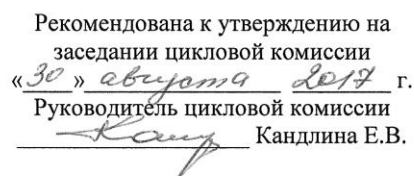 Рекомендована к утверждению на
заседании цикловой комиссии
«30» августа 2017 г.
Руководитель цикловой комиссии
Кандлина Е.В.